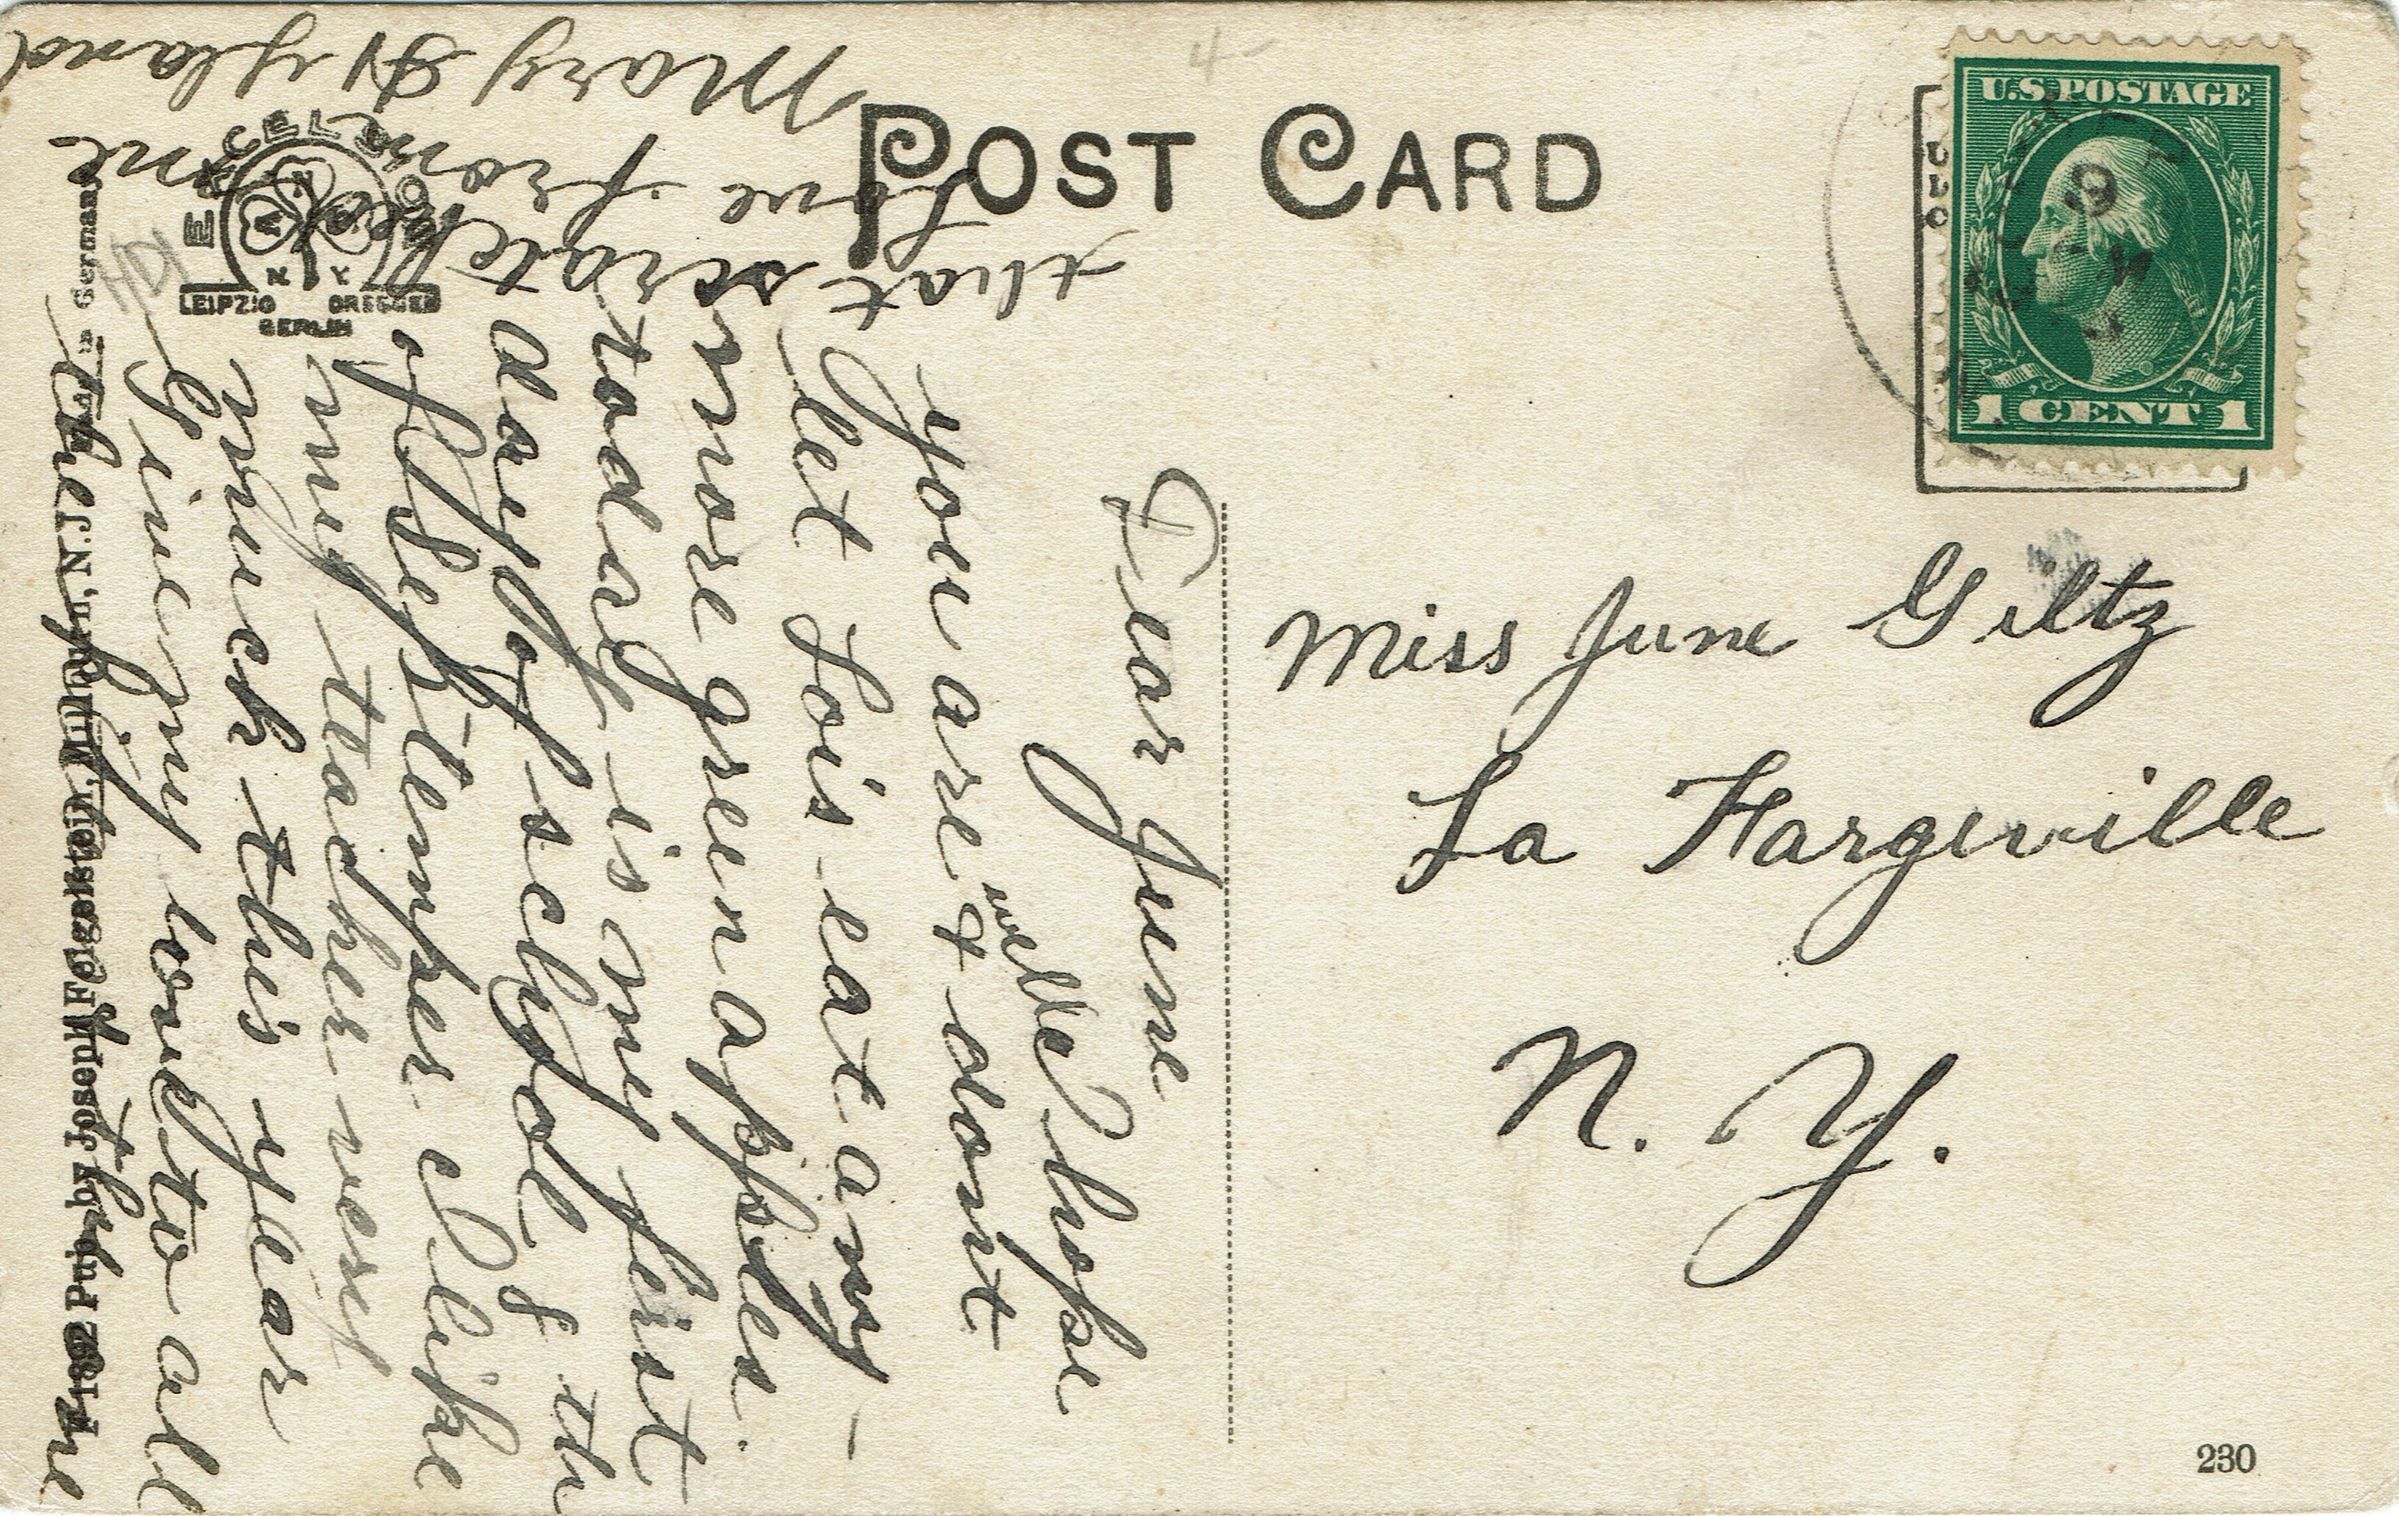 POST CARD
U.S. POSTAGE
1 CENT 1
EXCELSIOR
N.Y.
LEIPZIG DRESDEN
BERLIN
Miss June Giltz
La Fargeville
N. Y.
Dear June
I hope
well
you are & dont
let Lois eat any-
more green apples.
today is my first
day of school & the
of September I like
my teacher very
much this year
Give my love to all
the
that scratched me
Love from
Mary Hyland
1892 Pub. by Joseph Feigelstein, Millburn, N.J. in Germany
230